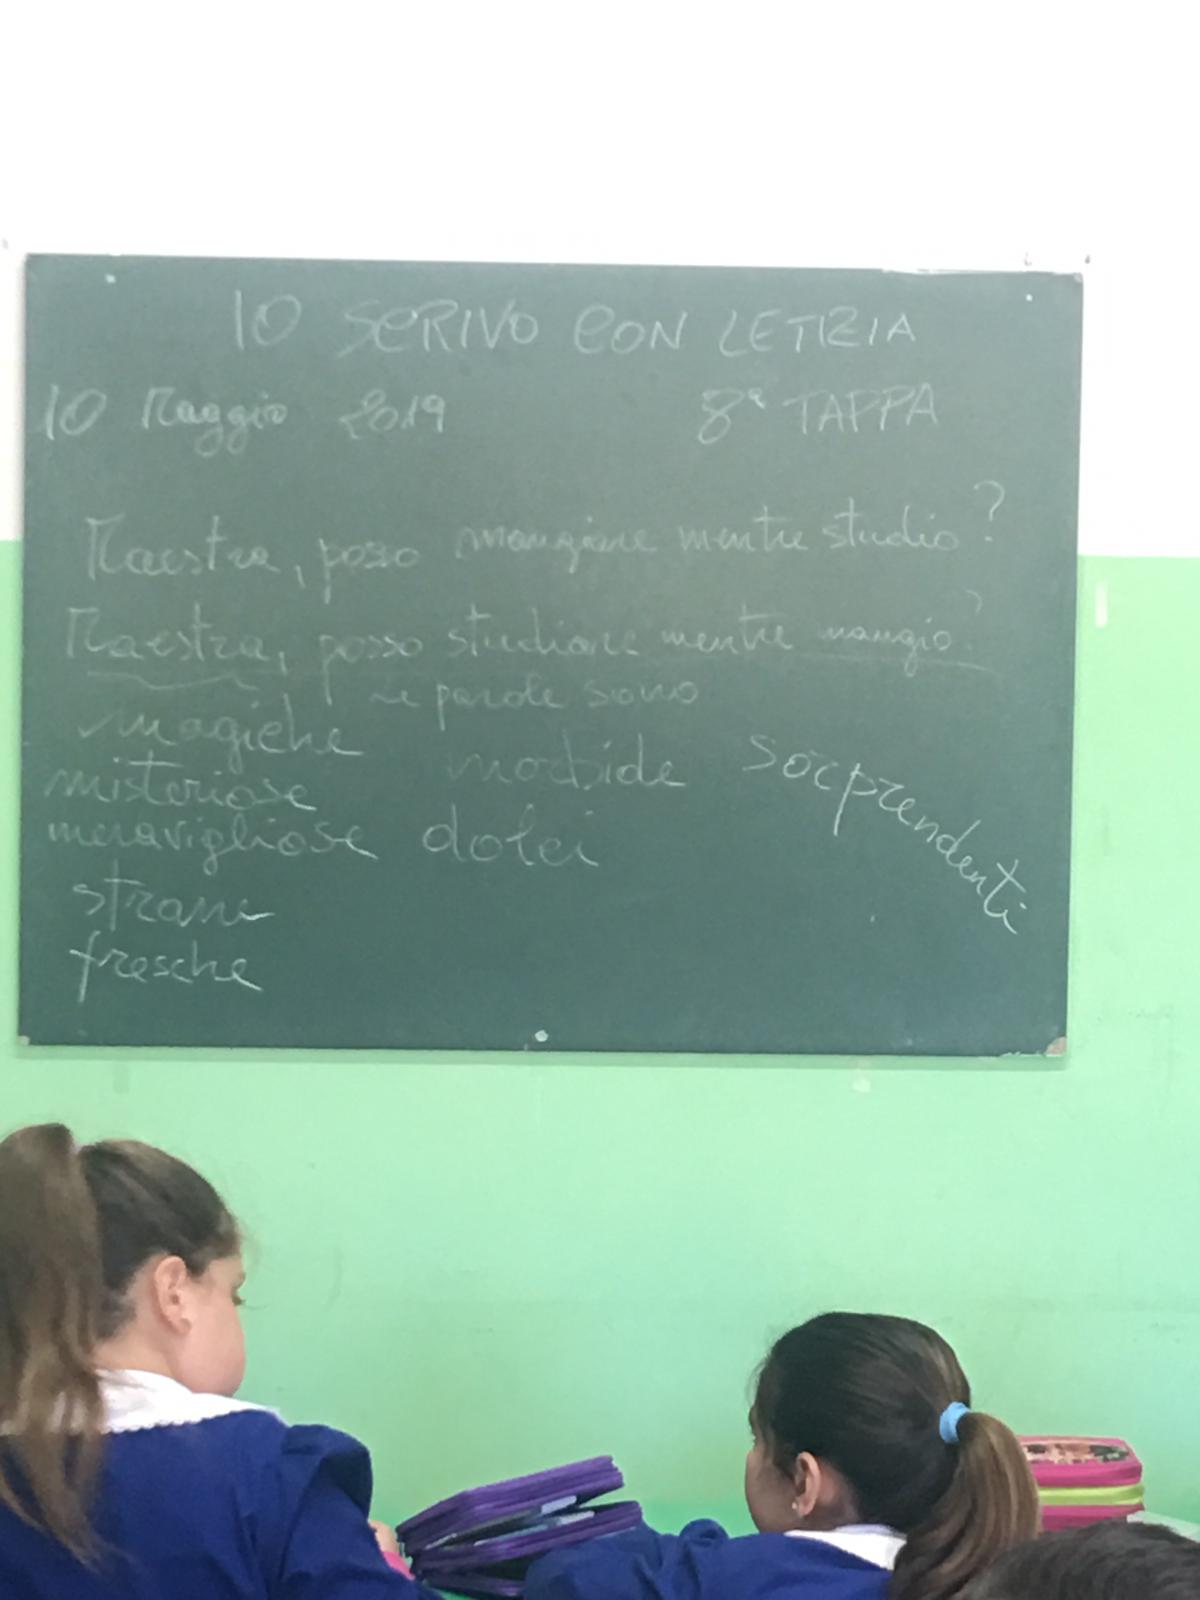 IO SCRIVO CON LETIZIA
10 Maggio 2019 8ª TAPPA
Maestra, posso mangiare mentre studio?
Maestra, posso studiare mentre mangio?
Le parole sono
magiche morbide sorprendenti
misteriose
meravigliose dolci
strane
fresche